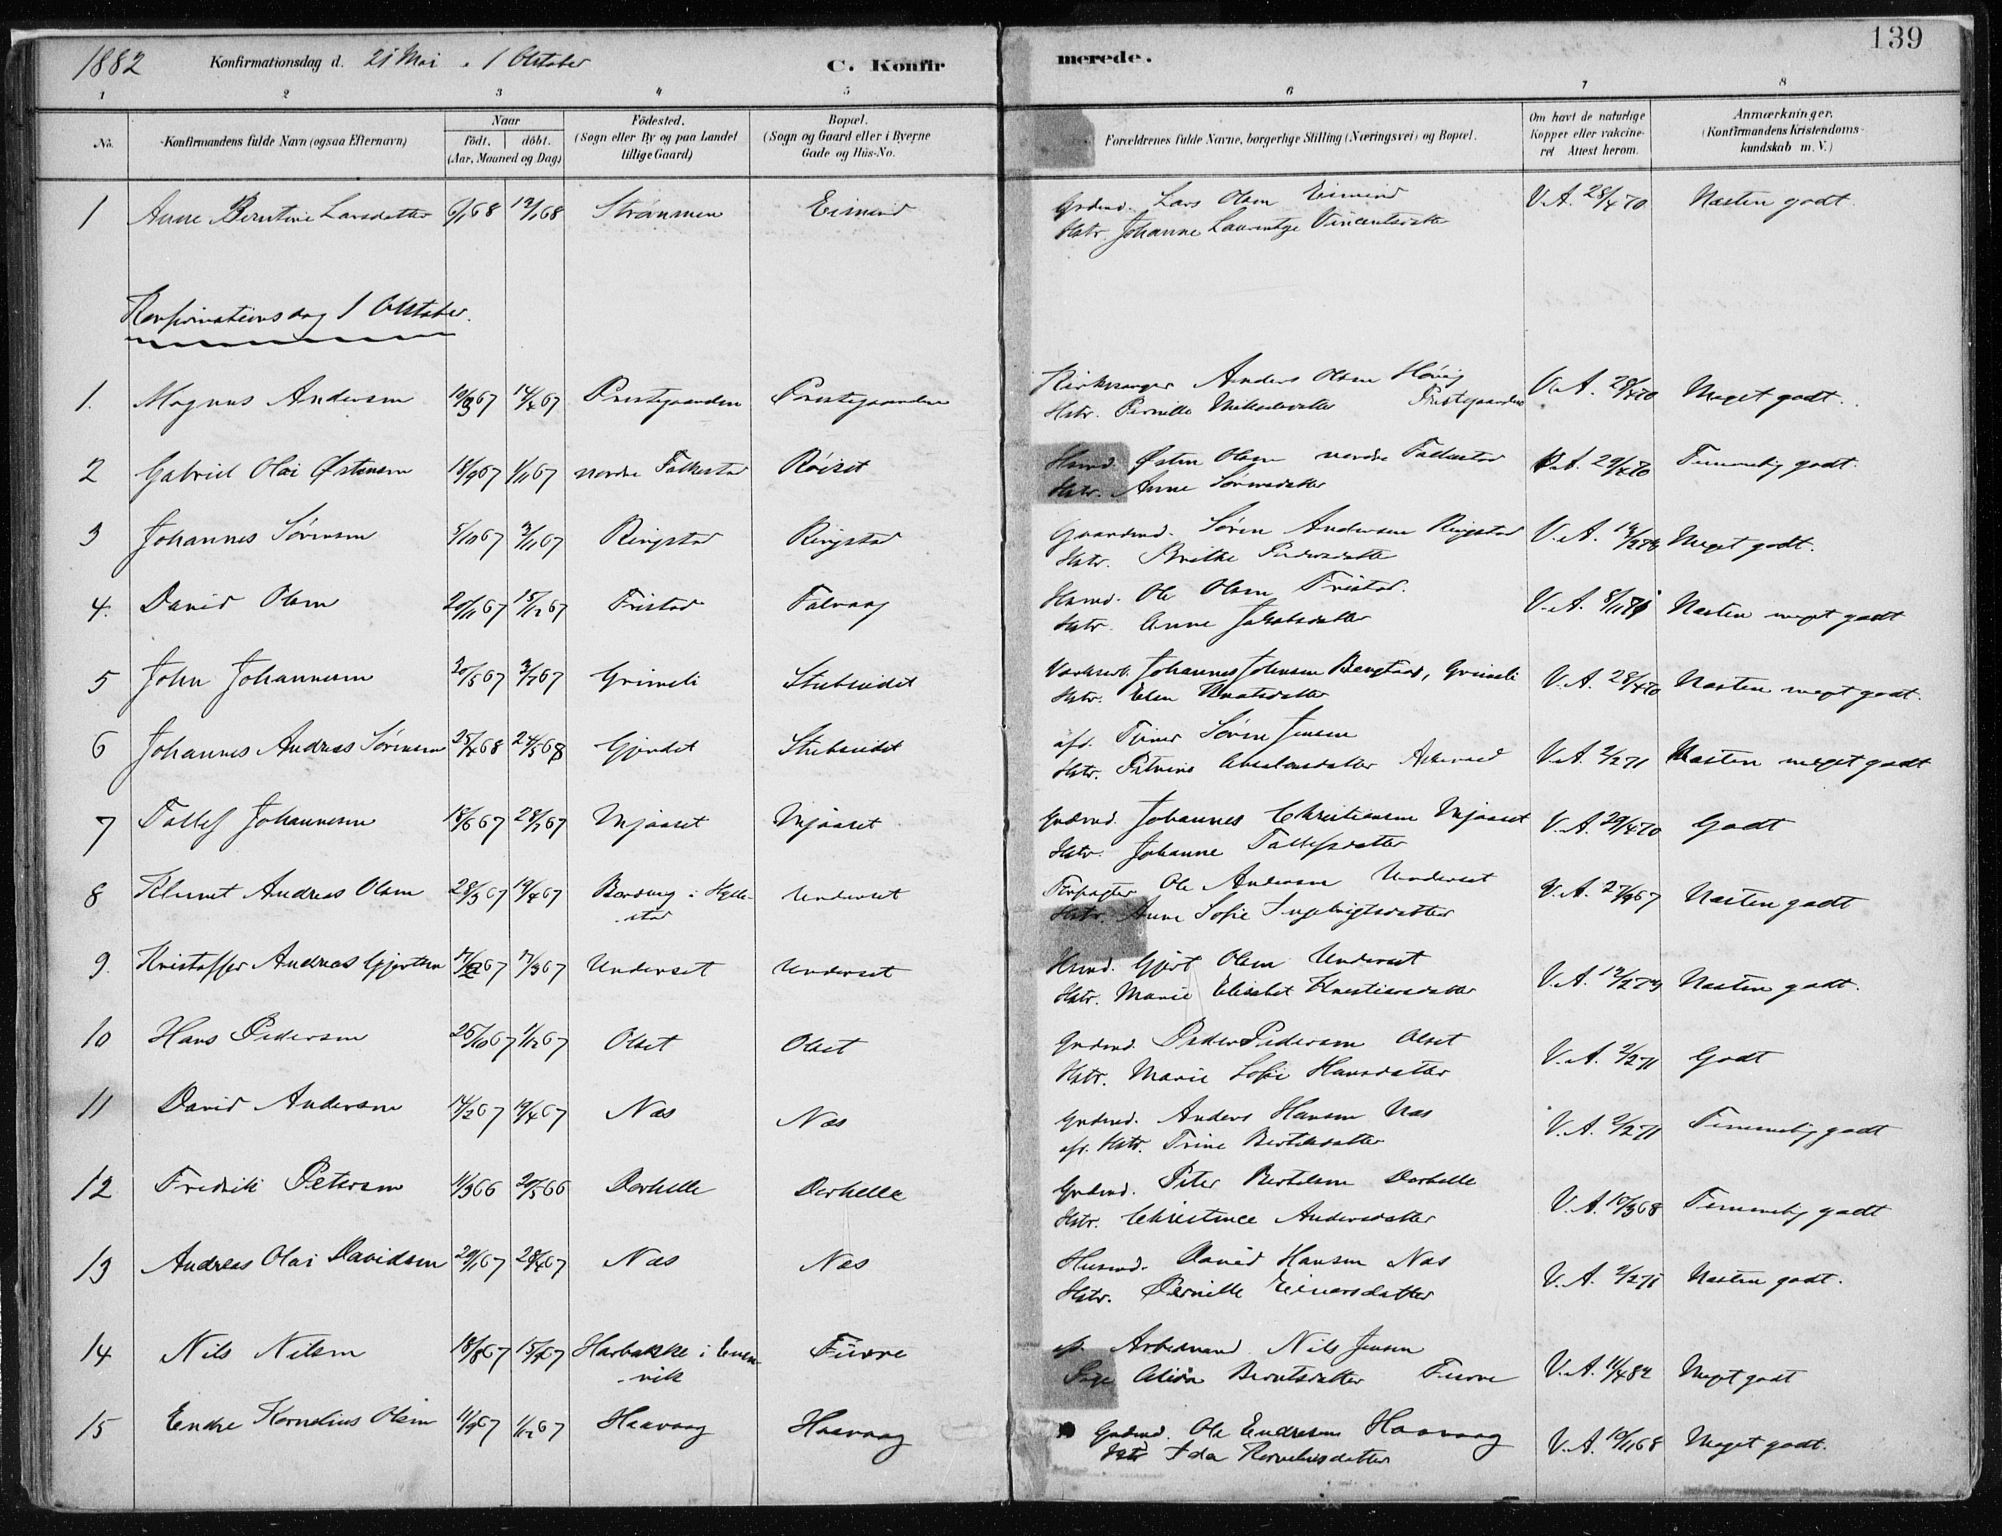 139
1882 Konfirmationsdag d. 21 Mai . 1 Oktober C. Konfirmerede.
1 2 3 4 5 6 7 8
No. Konfirmandens fulde Navn (ogsaa Efternavn) Naar født. døbt. (Aar, Maaned og Dag) Fødested. (Sogn eller By og paa Landet tillige Gaard) Bopæl. (Sogn og Gaard eller i Byerne Gade og Hus-No. Forældrenes fulde Navne, borgerlige Stilling (Næringsvei) og Bopæl. Om havt de naturlige Kopper eller vakcineret Attest herom. Anmærkninger. (Konfirmandens Kristendomskundskab m. V.)
1 Anne Larsdatter 6/1 68 12/1 68 Strømmen Lars Olsen V.A. 28/4 70 Næsten godt.
Hstr. Johanne Laurentze Vincentsdatter
Konfirmationsdag 1 Oktober.
1. Magnus Andersen 10/3 67 14/4 67 Præstegaarden Præstegaarden Kirkesanger Anders Olsen V.A. 28/4 70 Meget godt.
Hstr. Pernille Mikkelsdatter Præstegaarden
2 Gabriel Olai Østensen 18/9 67 1/11 67 nordre Folkestad Røiset Husmd. Østen Olsen nordre Folkestad V.A. 29/4 70 Temmelig godt.
Hstr. Anne Sørensdatter
3 Johannes Sørensen 5/10 67 3/11 67 Ringstad Ringstad Gaardmd. Søren Andersen Ringstad V.A. Meget godt.
Hstr. Brithe Pedersdatter
4. David Olsen 20/11 67 15/12 67 Fristad Husmd. Ole Olsen Fristad. V.A. 8/11 81 Næsten meget godt
Hstr. Anne Jakobsdatter
5 John Johannesen 30/5 67 3/7 67 Grimeli Stubseidet Johannes Johnsen Bengtaas, Grimeli V.A. 28/4 70 Næsten meget godt.
Hstr. Elen Knutsdatter
6 Johannes Andreas Sørensen 25/4 68 24/5 68 Gjerdet Stubseidet afd. Søren Jensen
Hstr. Absalonsdatter V.A. 2/2 71 Næsten meget godt
7 Tollef Johannesen 18/6 67 28/7 67 Mjaaset Mjaaset Grdmd. Johannes Christiansen Mjaaset V.A. 29/4 70 Godt
Hstr. Johanne Tollefsdatter
8 Klemet Andreas Olsen 28/3 67 19/4 67 i Hylle- Underset Forpagter Ole Andersen Underset V.A. Næsten godt
stad Hstr. Anne Sofie Ingebrigtsdatter
9. Kristoffer Andreas Gjertsen 17/2 67 17/3 67 Underset Underset Husmd. Gjert Olsen Underset V.A. Næsten godt.
Hstr. Marie Elisabet Kristiansdatter
10 Hans Pedersen 26/10 67 1/12 67 Olset Olset Grdmd. Peder Pedersen Olset V.A. 2/2 71 Godt
Hstr. Marie Sofie Hansdatter
11 David Andersen 14/2 67 19/4 67 Næs Næs Grdmd. Anders Hansen Næs V.A. 2/2 71 Temmelig godt
afd. Hstr. Trine Bertelsdatter
12 Fredrik Petersen 11/3 66 20/5 66 Dørhelle Dørhelle Grdmd. Peter Bertelsen Dørhelle V.A. 10/3 68 Temmelig godt
Hstr. Christence Andersdatter
13 Andreas Olai Davidsen 29/1 67 28/4 67 Næs Næs Husmd. David Hansen Næs V.A. 2/2 71 Næsten godt.
Hstr. Pernille Einersdatter
14 Nils Nilsen 18/8 67 15/9 67 Harbakke i Even- Furre af. Arbeidsmand Nils Jensen
vik Pige Alida Berntsdatter Furre V.A. 11/4 82 Meget godt
15 Endre Kornelius Olsen 11/9 67 1/12 67 Haavaag Haavaag Grdmd. Ole Endresen Haavaag V.A. 10/11 68 Meget godt.
Hstr Ida Korneliusdatter